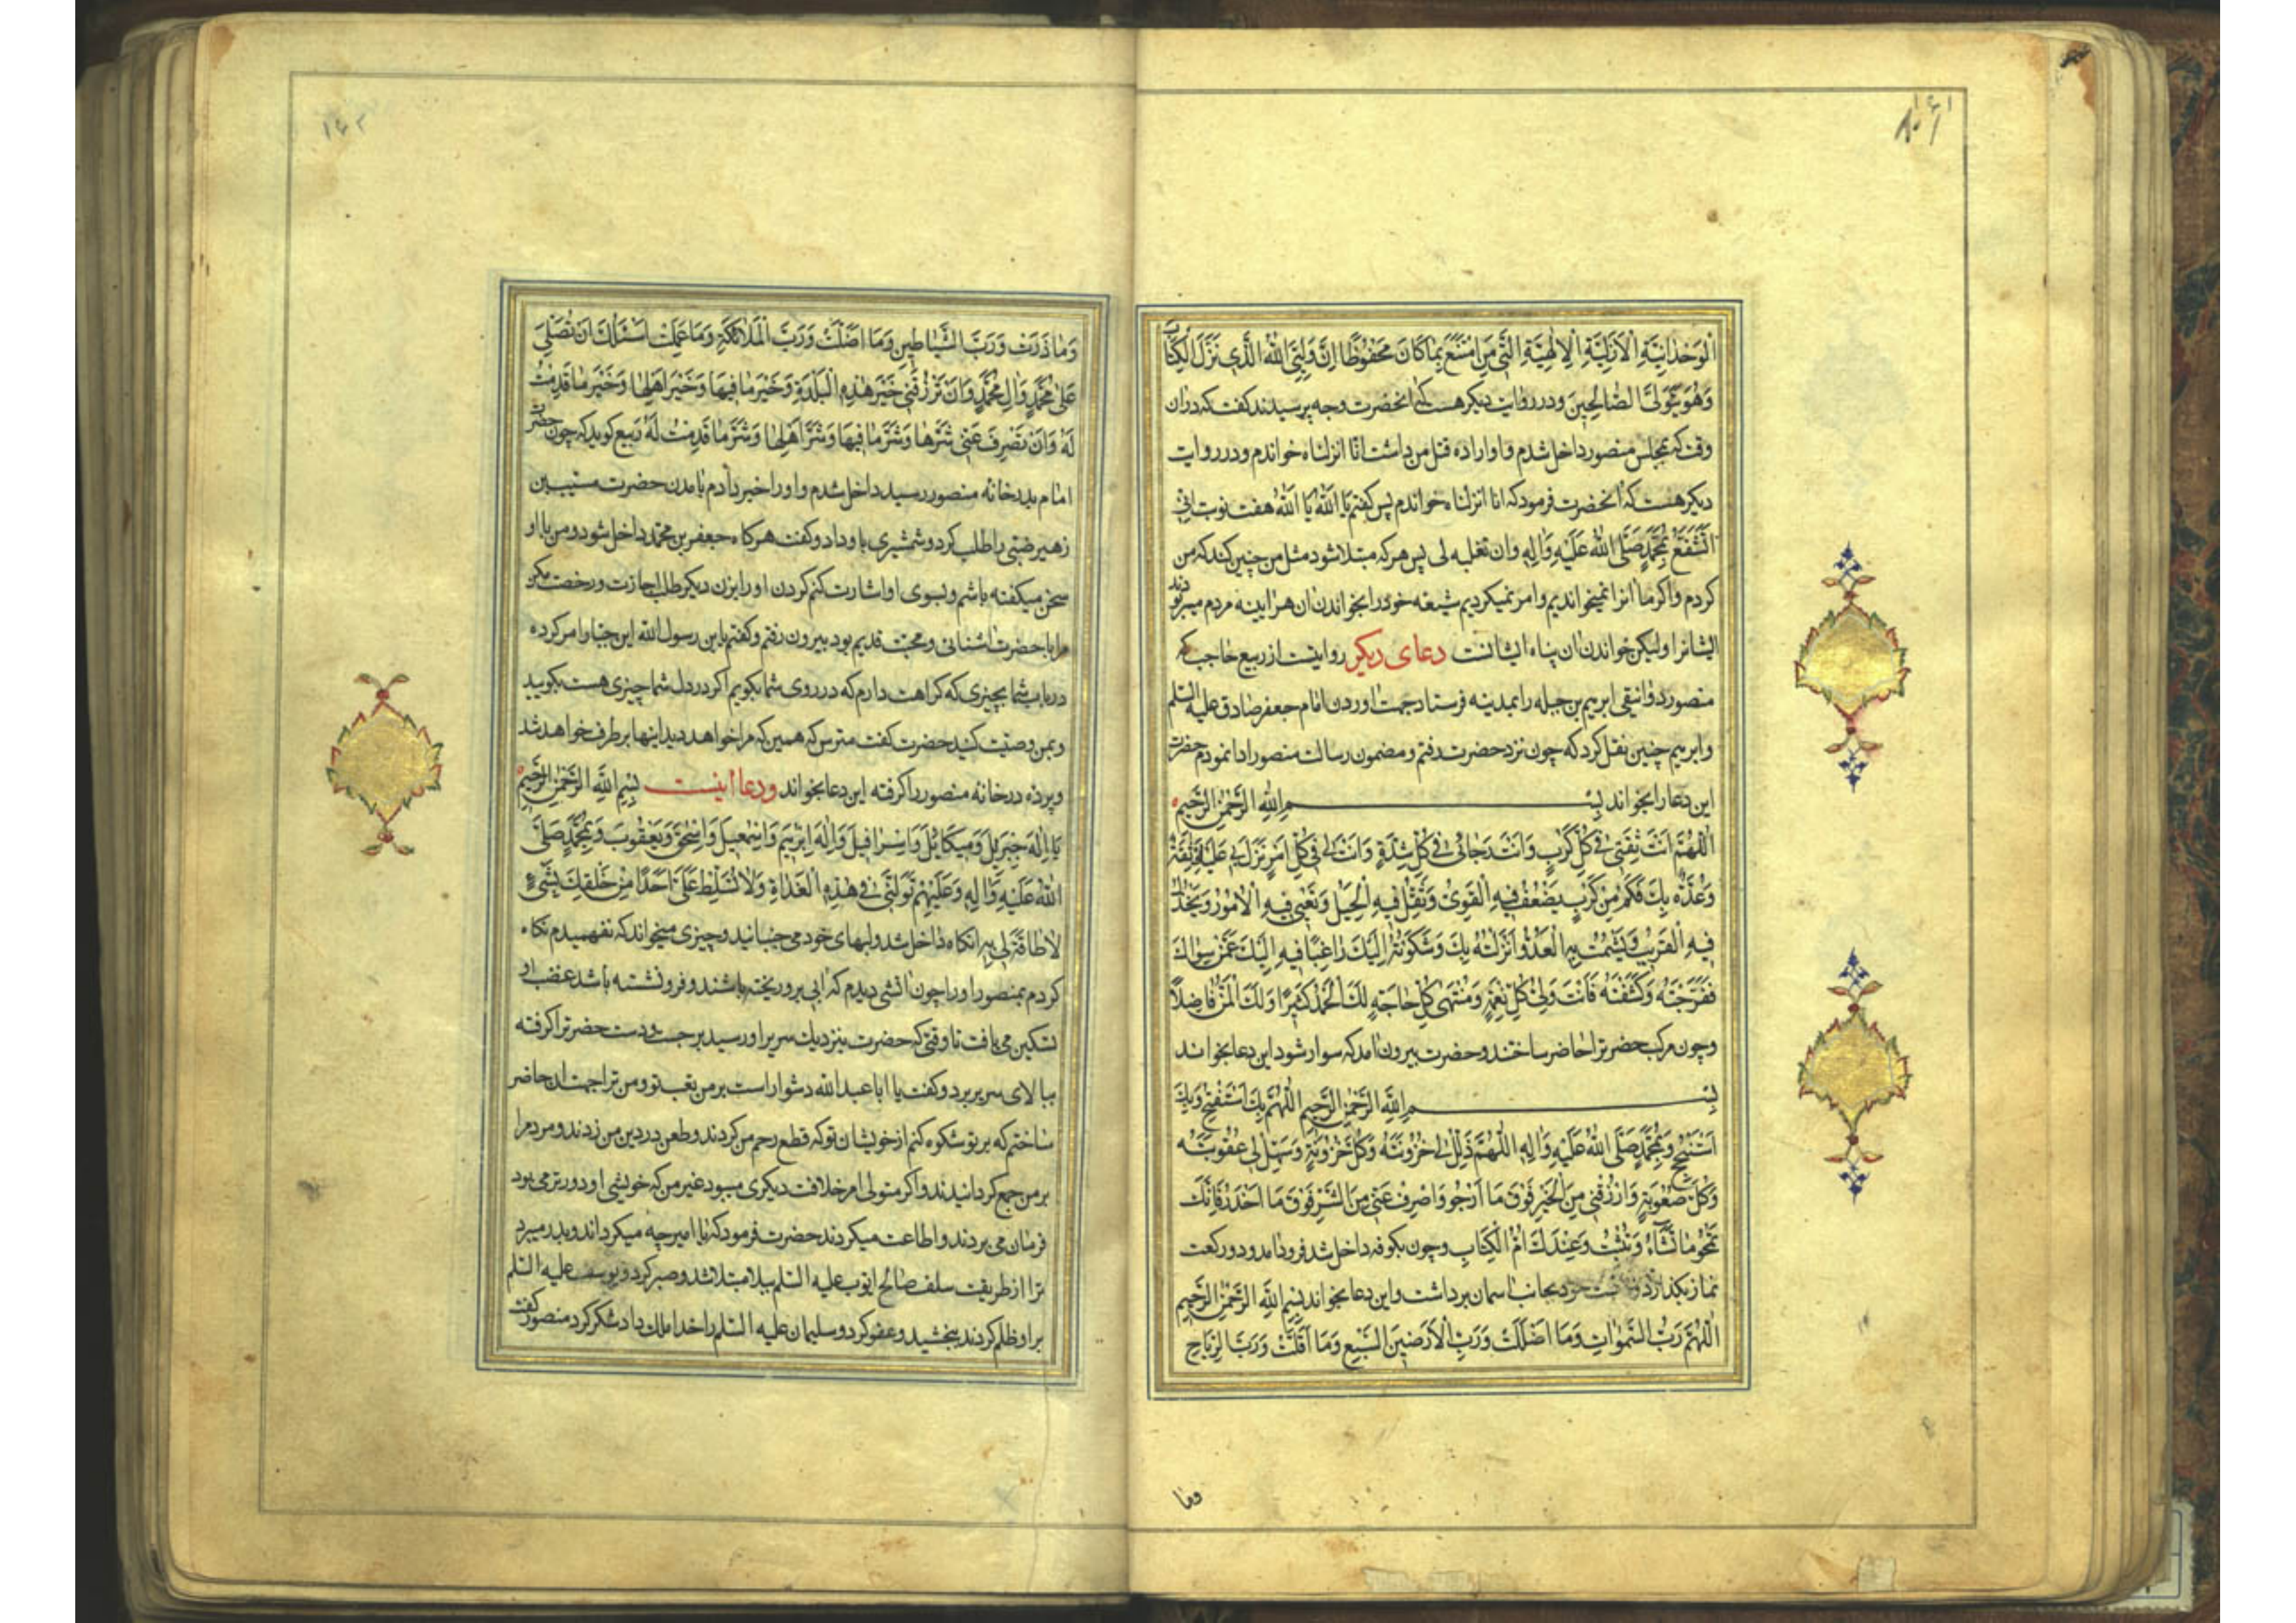 ۱۶۱
الْوَحْدَانِيَّةِ الْاَزَلِيَّةِ الْاِلٰهِيَّةِ الَّتِي مَنِ امْتَنَعَ بِهَا كَانَ مَحْفُوظًا اِنَّ وَلِيِّيَ اللّٰهُ الَّذِي نَزَّلَ الْكِتَابَ
وَهُوَ يَتَوَلَّى الصَّالِحِينَ ودر روایت دیکر هست که انحضرت وجه پرسیدند کفت که دران
وقت که بمجلس منصور داخل شدم و او اراده قتل من داشت انا انزلناه خواندم ودر روایت
دیکر هست که انحضرت فرمود که انا انزلناه خواندم پس کفتم یَا اَللّٰهُ یَا اَللّٰهُ هفت نوبت اِنِّی
اَتَشَفَّعُ بِمُحَمَّدٍ صَلَّى اللّٰهُ عَلَيْهِ وَاٰلِهِ وان تغلبه لی پس هر که مبتلا شود مثل من چنین کند که من
کردم واکر ما انرا نمیخواندیم وامر نمیکردیم شیعه خود را بخواندن ان هراینه مردم میربودند
ایشانرا ولیکن خواندن ان پناه ایشانست دعای دیکر روایتست از ربیع حاجب که
منصور دوانیقی ابریم بن جبله را بمدینه فرستاد جهت اوردن امام جعفر صادق علیه السلم
وابریم چنین نقل کرد که چون نزد حضرت رفتم و مضمون رسالت منصور ادا نمودم حضرت
این دعا را بخواند بِسْمِ اللّٰهِ الرَّحْمٰنِ الرَّحِيمِ
اَللّٰهُمَّ اَنْتَ ثِقَتِي فِي كُلِّ كَرْبٍ وَاَنْتَ رَجَائِي فِي كُلِّ شِدَّةٍ وَاَنْتَ لِي فِي كُلِّ اَمْرٍ نَزَلَ بِي عَلَيْكَ ثِقَةٌ
وَعُدَّةٌ بِكَ فَكَمْ مِنْ كَرْبٍ يَضْعُفُ فِيهِ الْقَوِيُّ وَتَقِلُّ فِيهِ الْحِيَلُ وَتُعْيِي فِيهِ الْاُمُورُ وَيَخْذُلُ
فِيهِ الْقَرِيبُ وَيَشْمَتُ بِهِ الْعَدُوُّ اَنْزَلْتُهُ بِكَ وَشَكَوْتُهُ اِلَيْكَ رَاغِبًا فِيهِ اِلَيْكَ عَمَّنْ سِوَاكَ
فَفَرَّجْتَهُ وَكَشَفْتَهُ فَاَنْتَ وَلِيُّ كُلِّ نِعْمَةٍ وَمُنْتَهٰى كُلِّ حَاجَةٍ لَكَ الْحَمْدُ كَثِيرًا وَلَكَ الْمَنُّ فَاضِلًا
وچون مرکب حضرترا حاضر ساختند وحضرت بیرون امد که سوار شود این دعا بخواند
بِسْمِ اللّٰهِ الرَّحْمٰنِ الرَّحِيمِ اَللّٰهُمَّ بِكَ اَسْتَفْتِحُ وَبِكَ
اَسْتَنْجِحُ وَبِمُحَمَّدٍ صَلَّى اللّٰهُ عَلَيْهِ وَاٰلِهِ اَللّٰهُمَّ ذَلِّلْ لِي حُزُونَتَهُ وَكُلَّ حُزُونَةٍ وَسَهِّلْ لِي صُعُوبَتَهُ
وَكُلَّ صُعُوبَةٍ وَارْزُقْنِي مِنَ الْخَيْرِ فَوْقَ مَا اَرْجُو وَاصْرِفْ عَنِّي مِنَ الشَّرِّ فَوْقَ مَا اَحْذَرُ فَاِنَّكَ
تَمْحُو مَا تَشَاءُ وَتُثْبِتُ وَعِنْدَكَ اُمُّ الْكِتَابِ وچون بکوفه داخل شد فرود امد ودو رکعت
نماز بکذارد ودست خود بجانب اسمان برداشت واین دعا بخواند بِسْمِ اللّٰهِ الرَّحْمٰنِ الرَّحِيمِ
اَللّٰهُمَّ رَبَّ السَّمٰوَاتِ وَمَا اَظَلَّتْ وَرَبَّ الْاَرَضِينَ السَّبْعِ وَمَا اَقَلَّتْ وَرَبَّ الرِّيَاحِ
وما
۱۶۲
وَمَا ذَرَتْ وَرَبَّ الشَّيَاطِينِ وَمَا اَضَلَّتْ وَرَبَّ الْمَلَائِكَةِ وَمَا عَمِلَتْ اَسْئَلُكَ اَنْ تُصَلِّيَ
عَلٰى مُحَمَّدٍ وَاٰلِ مُحَمَّدٍ وَاَنْ تَرْزُقَنِي خَيْرَ هٰذِهِ الْبَلْدَةِ وَخَيْرَ مَا فِيهَا وَخَيْرَ اَهْلِهَا وَخَيْرَ مَا قَدِمْتُ
لَهُ وَاَنْ تَصْرِفَ عَنِّي شَرَّهَا وَشَرَّ مَا فِيهَا وَشَرَّ اَهْلِهَا وَشَرَّ مَا قَدِمْتُ لَهُ ربیع کوید که چون حضرت
امام بدر خانه منصور رسید داخل شدم واو را خبر دادم بامدن حضرت مسیب بن
زهیر ضبی را طلب کرد وشمشیری باو داد وکفت هر کاه جعفر بن محمد داخل شود ومن با او
سخن میکفته باشم وبسوی او اشارت کنم کردن او را بزن دیکر طلب اجازت ورخصت مکن
مرا با حضرت اشنائی ومحبت قدیم بود بیرون رفتم وکفتم یابن رسول الله این جبار امر کرده
در باب شما بچیزی که کراهت دارم که در روی شما بکویم اکر در دل شما چیزی هست بکویید
وبمن وصیت کنید حضرت کفت مترس که همین که مرا خواهد دید اینها بر طرف خواهد شد
وپرده در خانه منصور را کرفته این دعا بخواند ودعا اینست بِسْمِ اللّٰهِ الرَّحْمٰنِ الرَّحِيمِ
يَا اِلٰهَ جِبْرَئِيلَ وَمِيكَائِيلَ وَاِسْرَافِيلَ وَاِلٰهَ اِبْرٰهِيمَ وَاِسْمٰعِيلَ وَاِسْحٰقَ وَيَعْقُوبَ وَمُحَمَّدٍ صَلَّى
اللّٰهُ عَلَيْهِ وَاٰلِهِ وَعَلَيْهِمْ تَوَلَّنِي فِي هٰذِهِ الْغَدَاةِ وَلَا تُسَلِّطْ عَلَيَّ اَحَدًا مِنْ خَلْقِكَ بِشَيْءٍ
لَا طَاقَةَ لِي بِهِ انکاه داخل شد ولبهای خود می جنبانید وچیزی میخواند که نفهمیدم نکاه
کردم بمنصور او را چون اتشی دیدم که ابی برو ریخته باشند وفرو نشسته باشد غضب او
تسکین می یافت تا وقتی که حضرت بنزدیک سریر او رسید برجست ودست حضرترا کرفته
ببالای سریر برد وکفت یا ابا عبد الله دشوار است بر من تعب تو ومن ترا جهت ان حاضر
ساختم که بر تو شکوه کنم از خویشان تو که قطع رحم من کردند وطعن در دین من زدند ومردم را
بر من جمع کردانیدند واکر متولی امر خلافت دیکری میبود غیر من که خویشی او دورتر می بود
فرمان می بردند واطاعت میکردند حضرت فرمود که یا امیر چه میکرداند وبدر میبرد
ترا از طریقت سلف صالح ایوب علیه السلم ببلا مبتلا شد وصبر کرد ویوسف علیه السلم
بر او ظلم کردند ببخشید وعفو کرد وسلیمان علیه السلم را خدا ملک داد شکر کرد منصور کفت